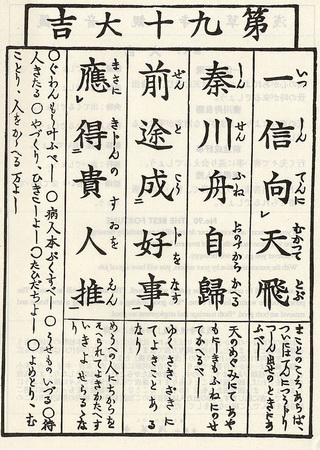 第九十大吉
一信向天飛
いつしんてんにむかつてとぶ
まことのこころあらば、
ついには万につうじり
つしん出せのときにあ
ふべし
秦川舟自歸
しんせんふねおのづからかへる
天のめぐみにてあや
もにしきもふねにのせ
てかへるべし
前途成好事
ぜんとこうじをなす
ゆくさきざきに
てよきことある
なり
應得貴人推
まさにきじんのすおをえん
めうへの人にちからを
そへられてよきかたへす
いきよせらるゝな
り
○病人本ぷくすべし ○うせものいづる ○待
人きたる ○やづくり、ひきこしよし ○たびだちよし ○よめとり、むこ
とり、人をかゝへる万よし